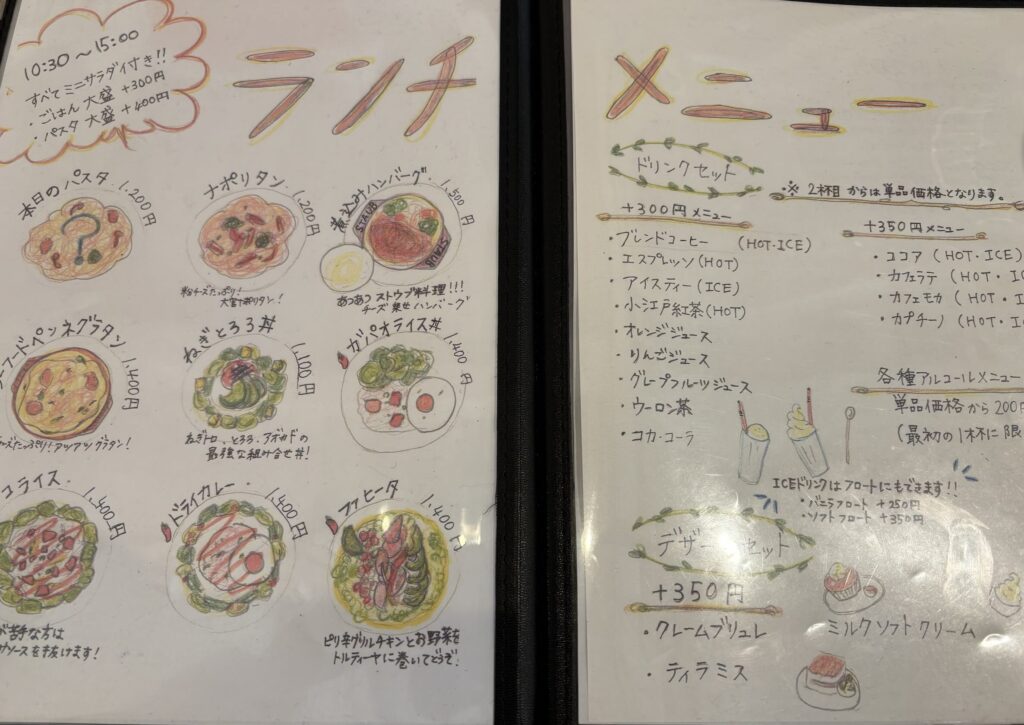 10:30～15:00
すべてミニサラダ付き!!
・ごはん 大盛 +300円
・パスタ 大盛 +400円
ランチ
本日のパスタ 1,200円
ナポリタン 1,200円
粉チーズたっぷり!
大宮ナポリタン!
煮込みハンバーグ 1,500円
STAUB
STAUB
あつあつ ストウブ料理!!!
チーズ乗せハンバーグ
フードペンネグラタン 1,400円
ーズたっぷり!アツアツグラタン!
ねぎとろろ丼 1,100円
ねぎトロ、とろろ、アボカドの
最強な組み合せ丼!
ガパオライス丼 1,400円
コライス 1,400円
が苦手な方は
ソースを抜けます!
ドライカレー 1,400円
ファヒータ 1,400円
ピリ辛グリルチキンとお野菜を
トルティーヤに巻いてどうぞ!
メニュー
ドリンクセット
※ 2杯目からは単品価格となります。
+300円メニュー
・ブレンドコーヒー (HOT・ICE)
・エスプレッソ(HOT)
・アイスティー(ICE)
・小江戸紅茶(HOT)
・オレンジジュース
・りんごジュース
・グレープフルーツジュース
・ウーロン茶
・コカ・コーラ
+350円メニュー
・ココア (HOT・ICE)
・カフェラテ (HOT・I
・カフェモカ (HOT・I
・カプチーノ (HOT・I
各種アルコールメニュー
単品価格から200円
(最初の1杯に限
ICEドリンクはフロートにもできます!!
・バニラフロート +250円
・ソフトフロート +350円
デザートセット
+350円
・クレームブリュレ
ミルクソフトクリーム
・ティラミス